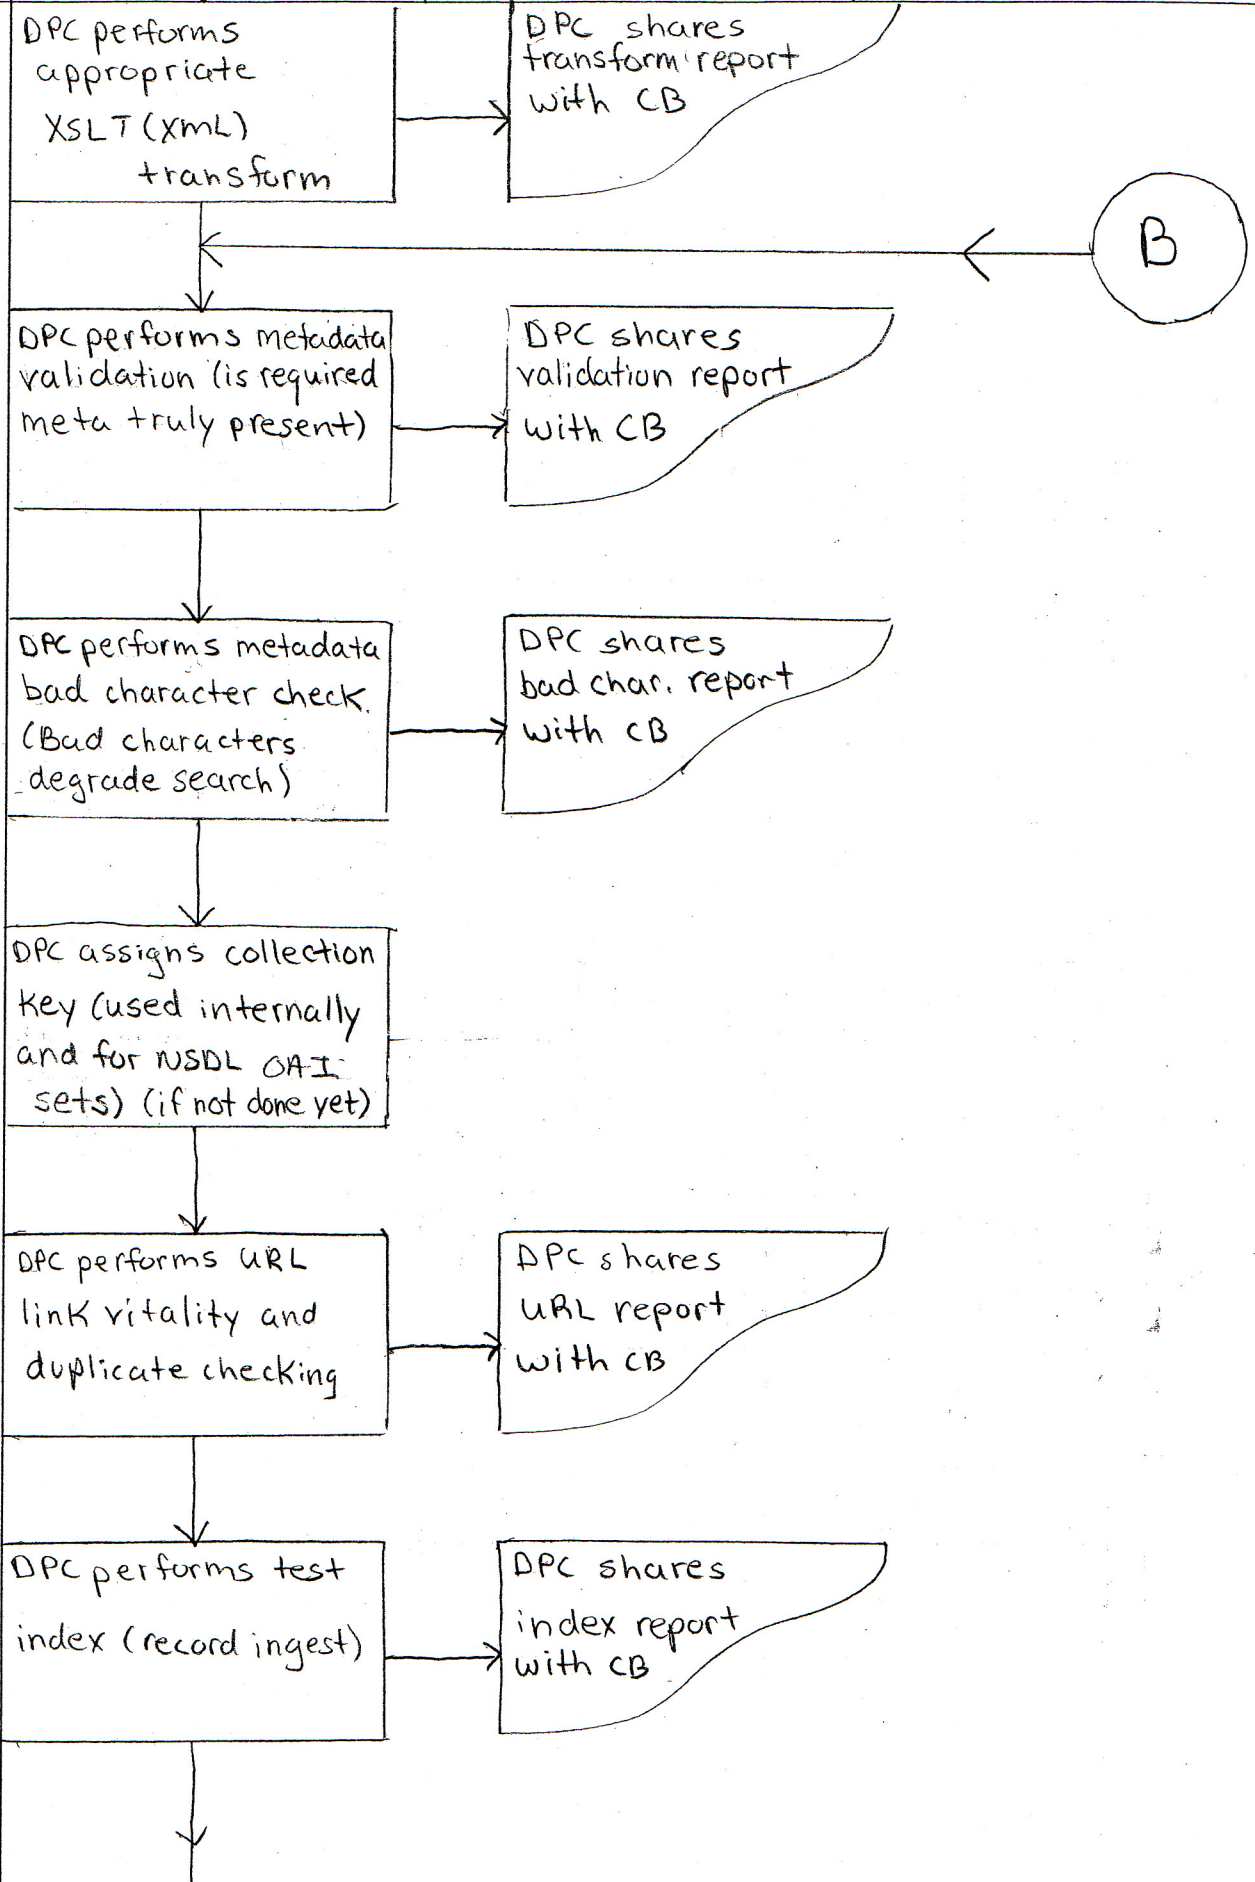 DPC performs
appropriate
XSLT (XML)
transform
DPC shares
transform report
with CB
B
DPC performs metadata
validation (is required
meta truly present)
DPC shares
validation report
with CB
DPC performs metadata
bad character check.
(Bad characters
degrade search)
DPC shares
bad char. report
with CB
DPC assigns collection
key (used internally
and for NSDL OAI
sets) (if not done yet)
DPC performs URL
link vitality and
duplicate checking
DPC shares
URL report
with CB
DPC performs test
index (record ingest)
DPC shares
index report
with CB